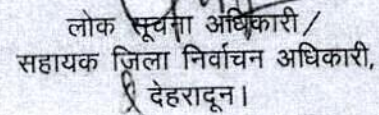 लोक सूचना अधिकारी /
सहायक जिला निर्वाचन अधिकारी,
देहरादून।